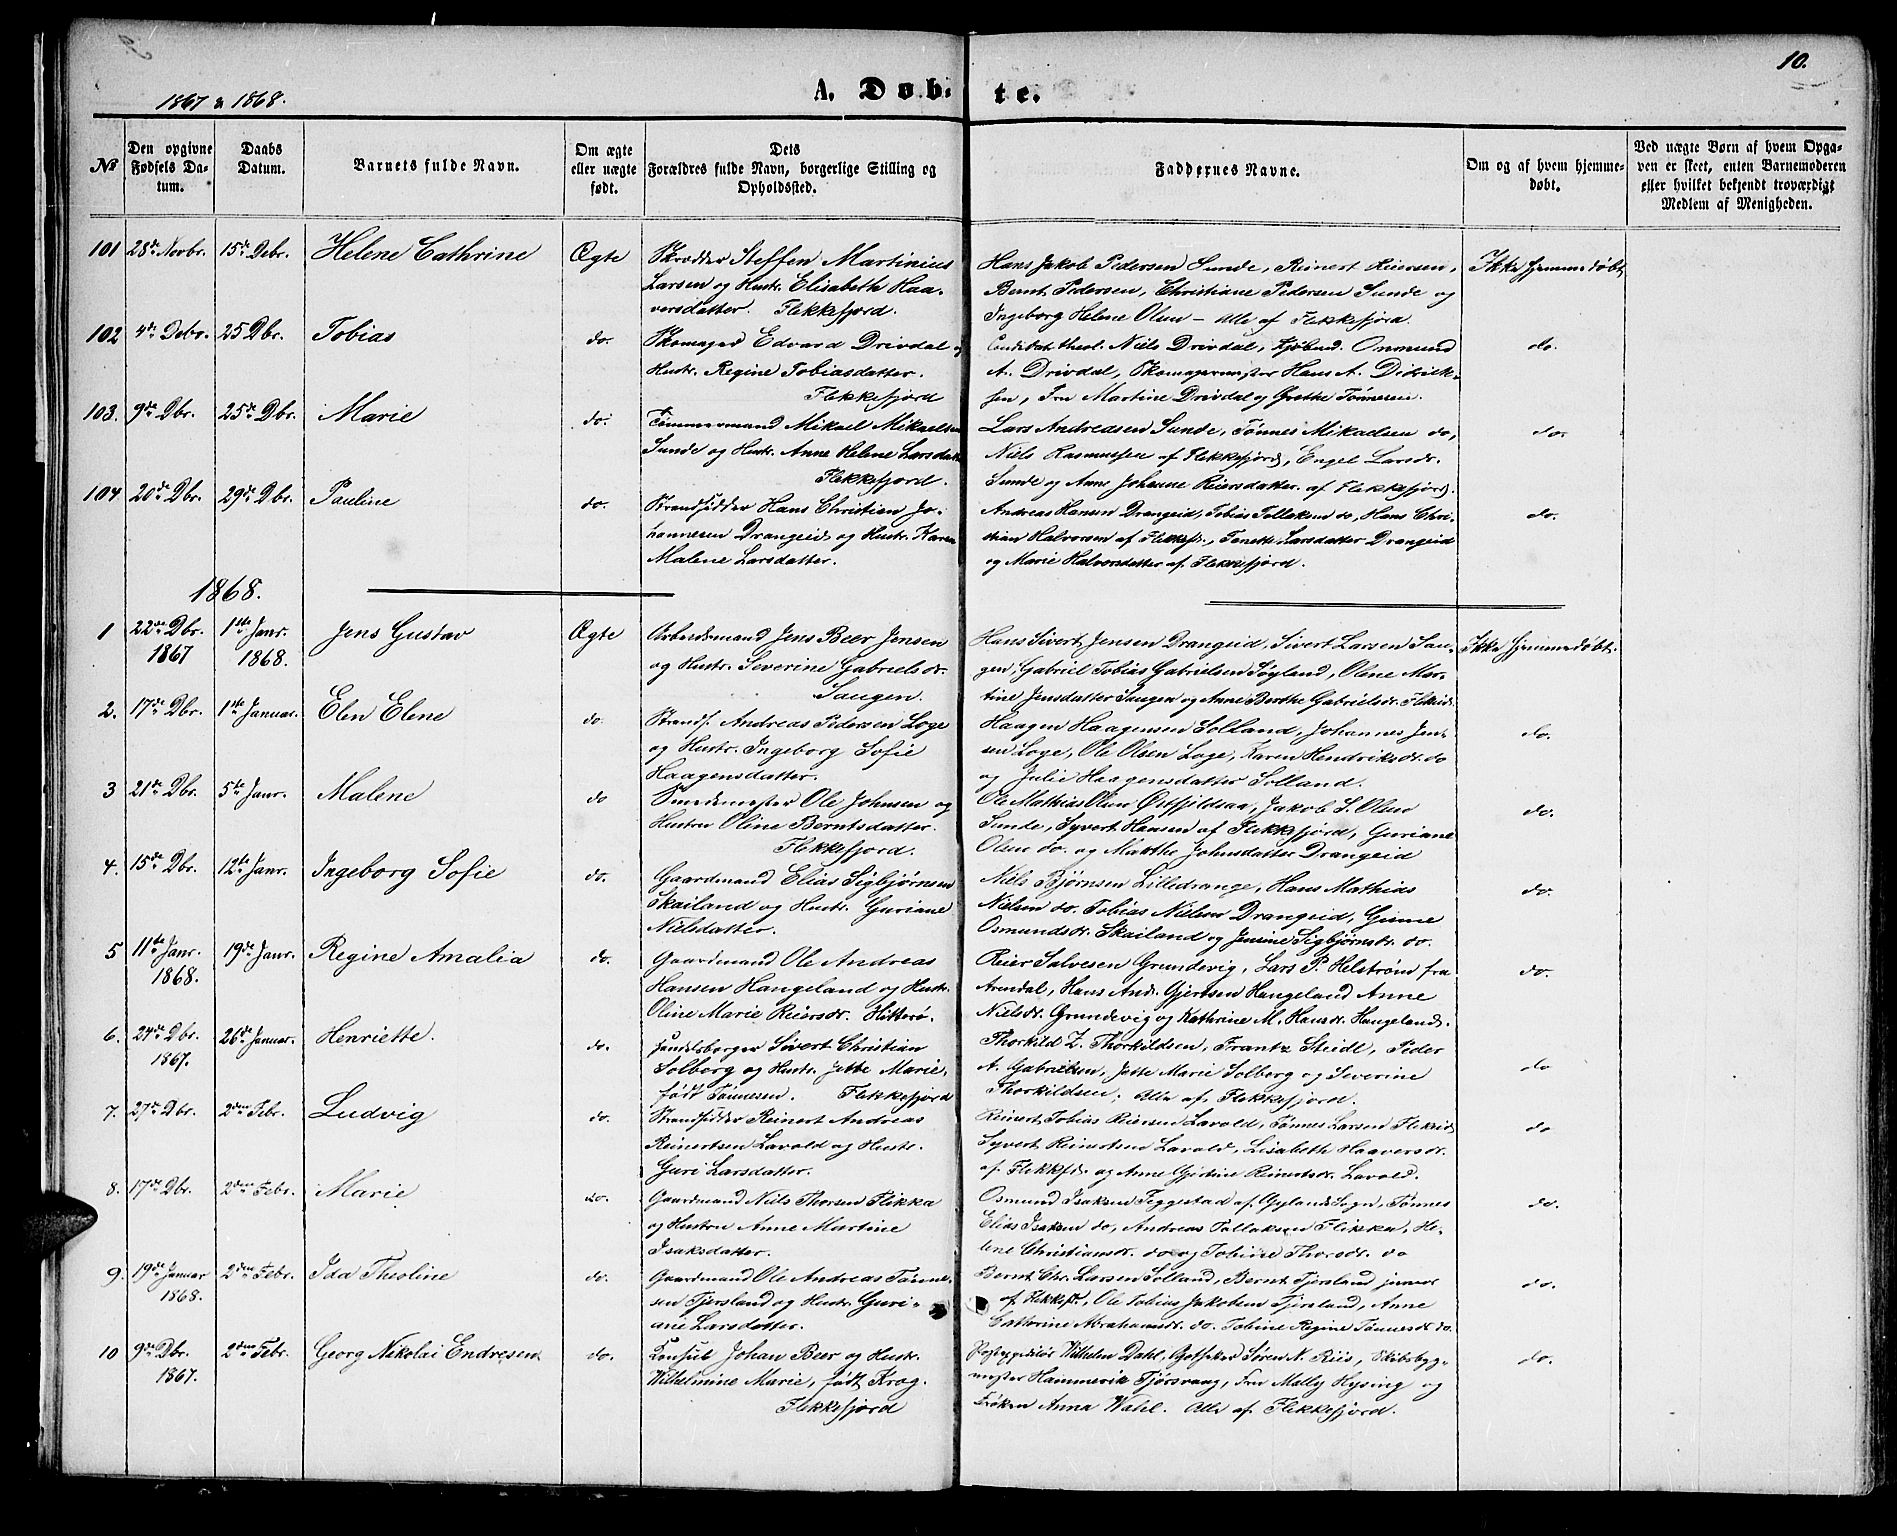 10.
1867 & 1868.
A. Døbte.
№
Den opgivne Fødsels Datum.
Daabs Datum.
Barnets fulde Navn.
Om ægte eller uægte født.
Dets Forældres fulde Navn, borgerlige Stilling og Opholdssted.
Faddernes Navne.
Om og af hvem hjemmedøbt.
Ved uægte Børn af hvem Opgaven er skeet, enten Barnemoderen eller hvilket bekjendt troværdigt Medlem af Menigheden.
101 28de Novbr. 15de Debr. Helene Cathrine Ægte
Skrædder Steffen Martinius
Larsen og Hustr. Elisabeth Haa-
versdatter. Flekkefjord.
Hans Jakob Pedersen Sunde, Reinert Reiersen,
Bernt Pedersen, Christiane Pedersen Sunde og
Ingeborg Helene Olsen – Alle af Flekkefjord.
Ikke hjemmedøbt
102 4de Debr. 25 Dbr. Tobias do.
Skomager Edvard Drivdal og
Hustr. Regine Tobiasdatter.
Flekkefjord
Candidat theol. Niels Drivdal, Onmund
A. Drivdal, Skomagermester Hans A. Didrik-
sen, Fru Martine Drivdal og Grethe Tønnesen.
do.
103. 9de Dbr. 25de Dbr. Marie do.
Tømmermand Mikael Mikaelsen
Sunde og Hustr. Anne Helene Larsdatt.
Flekkefjord.
Lars Andreasen Sunde, Tønnes Mikaelsen do,
Niels Rasmussen af Flekkefjord, Engel Larsdr.
Sunde og Anne Johanne Reiersdatter. af Flekkefjord.
do.
104. 20de Dbr. 29de Dbr. Pauline do.
Strandsidder Hans Christian Jo-
hannesen Drangeid og Hustr. Karen
Malene Larsdatter.
Andreas Hansen Drangeid, Tobias Tollaksen do, Hans Chri-
stian Halvorsen af Flekkefj., Tonette Larsdatter Drangeid
og Marie Halvorsdatter af Flekkefjord.
do.
1868.
1 22de Dbr. 1867 1ste Janr. 1868. Jens Gustav Ægte
Arbeidsmand Jens Beer Jensen
og Hustr. Severine Gabrielsdr.
Saugen.
Hans Sivert Jensen Drangeid, Sivert Larsen Sau-
gen, Gabriel Tobias Gabrielsen Søyland, Olene Mar-
tine Jensdatter Saugen og Anne Berthe Gabrielsdr. Flekkefj.
Ikke hjemmedøbt.
2. 17de Dbr. 1ste Januar. Elen Elene do.
Strands. Andreas Pedersen Loge
og Hustr. Ingeborg Sofie
Haagensdatter.
Haagen Haagensen Solland, Johannes Jen-
sen Loge, Ole Olsen Loge, Karen Hendriksdr. do
og Julie Haagensdatter Solland.
do.
3 21de Dbr. 5te Janr. Malene do
Smedemester Ole Johnsen og
Hustru Oline Berntsdatter.
Flekkefjord.
Ole Mathias Olsen Østfildsaa, Jakob S. Olsen
Sunde, Syvert Hansen af Flekkefjord, Guriane
Olsen do. og Marthe Johnsdatter Drangeid
do.
4. 15de Dbr. 12te Janr. Ingeborg Sofie do.
Gaardmand Elias Sigbjørnsen
Skailand og Hustr. Guriane
Nielsdatter.
Niels Bjørnsen Lilledrange, Hans Mathias
Nielsen do. Tobias Nielsen Drangeid, Gunne
Osmundsdr. Skailand og Jensine Sigbjørnsdr. do.
do.
5 11te Janr. 1868. 19de Janr. Regine Amalia do.
Gaardmand Ole Andreas
Hansen Hangeland og Hustr.
Oline Marie Reiersdr. Hitterø.
Reier Salvesen Grundevig, Lars P. Helstrøm fra
Arendal, Hans Andr. Gjertsen Hangeland Anne
Nielsdr. Grundevig og Kathrine M. Hansdr. Hangeland.
do.
6. 24de Dbr. 1867. 26de Januar. Henriette. do.
Handelsborger Sivert Christian
Solborg og Hustr. Jette Marie,
født Tønnesen. Flekkefjord
Thorkild Z. Thorkildsen, Frantz Steidl, Peder
A. Gabrielsen, Jette Marie Solberg og Severine
Thorkildsen. Alle af Flekkefjord.
do
7. 27de Dbr. 2den Febr. Ludvig do.
Strandsidder Reinert Andreas
Reinertsen Lavold og Hustr.
Guri Larsdatter.
Reinert Tobias Reiersen Lavold, Tønnes Larsen
Syvert Reinertsen Lavold, Lisabeth Haaversdr.
af Flekkefj. og Anne Gjedine Reinertsdr. Lavold.
do
8. 17de Dbr. 2den Febr. Marie do.
Gaardmand Niels Thorsen Flikka
og Hustru Anne Martine
Isaksdatter.
Osmund Isaksen Teggestad af Gylands Sogn, Tønnes
Elias Isaksen do, Andreas Tollaksen Flikka, He-
lene Christiansdr. do og Tobine Thorsdr. do
do.
9. 19de Januar 1868. 2den Febr. Ida Theoline do.
Gaardmand Ole Andreas Tønne-
sen Tjersland og Hustr. Guri-
ane Larsdatter.
Bernt Chr. Larsen Solland, Bernt Tjersland junior
af Flekkefj., Ole Tobias Jakobsen Tjersland, Anne
Cathrine Abrahamsdr. do. Tobine Regine Tønnesdr. do.
do.
10 9de Dbr. 1867. 2den Febr. Georg Nikolai Endresen do.
Konsul Johan Beer og Hustr.
Wilhelmine Marie, født Krog.
Flekkefjord
Postexpeditør Wilhelm Dahl, Apotheker Søren N. Riis, Skibsbyg-
mester Hammerik Tjørsvaag, Fru Mally Hysing og
Frøken Anna Wahl. Alle af Flekkefjord.
do.